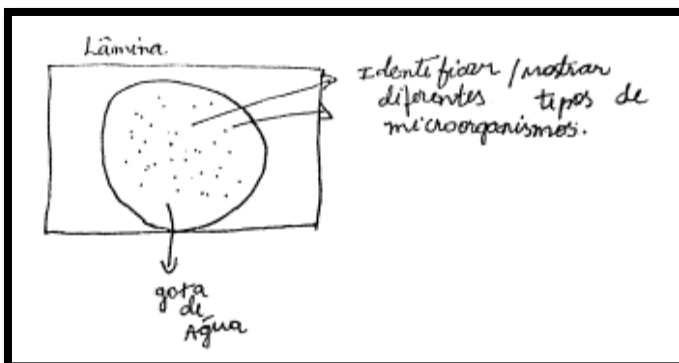 Lâmina
Identificar / mostrar
diferentes tipos de
microorganismos.
gota
de
Água